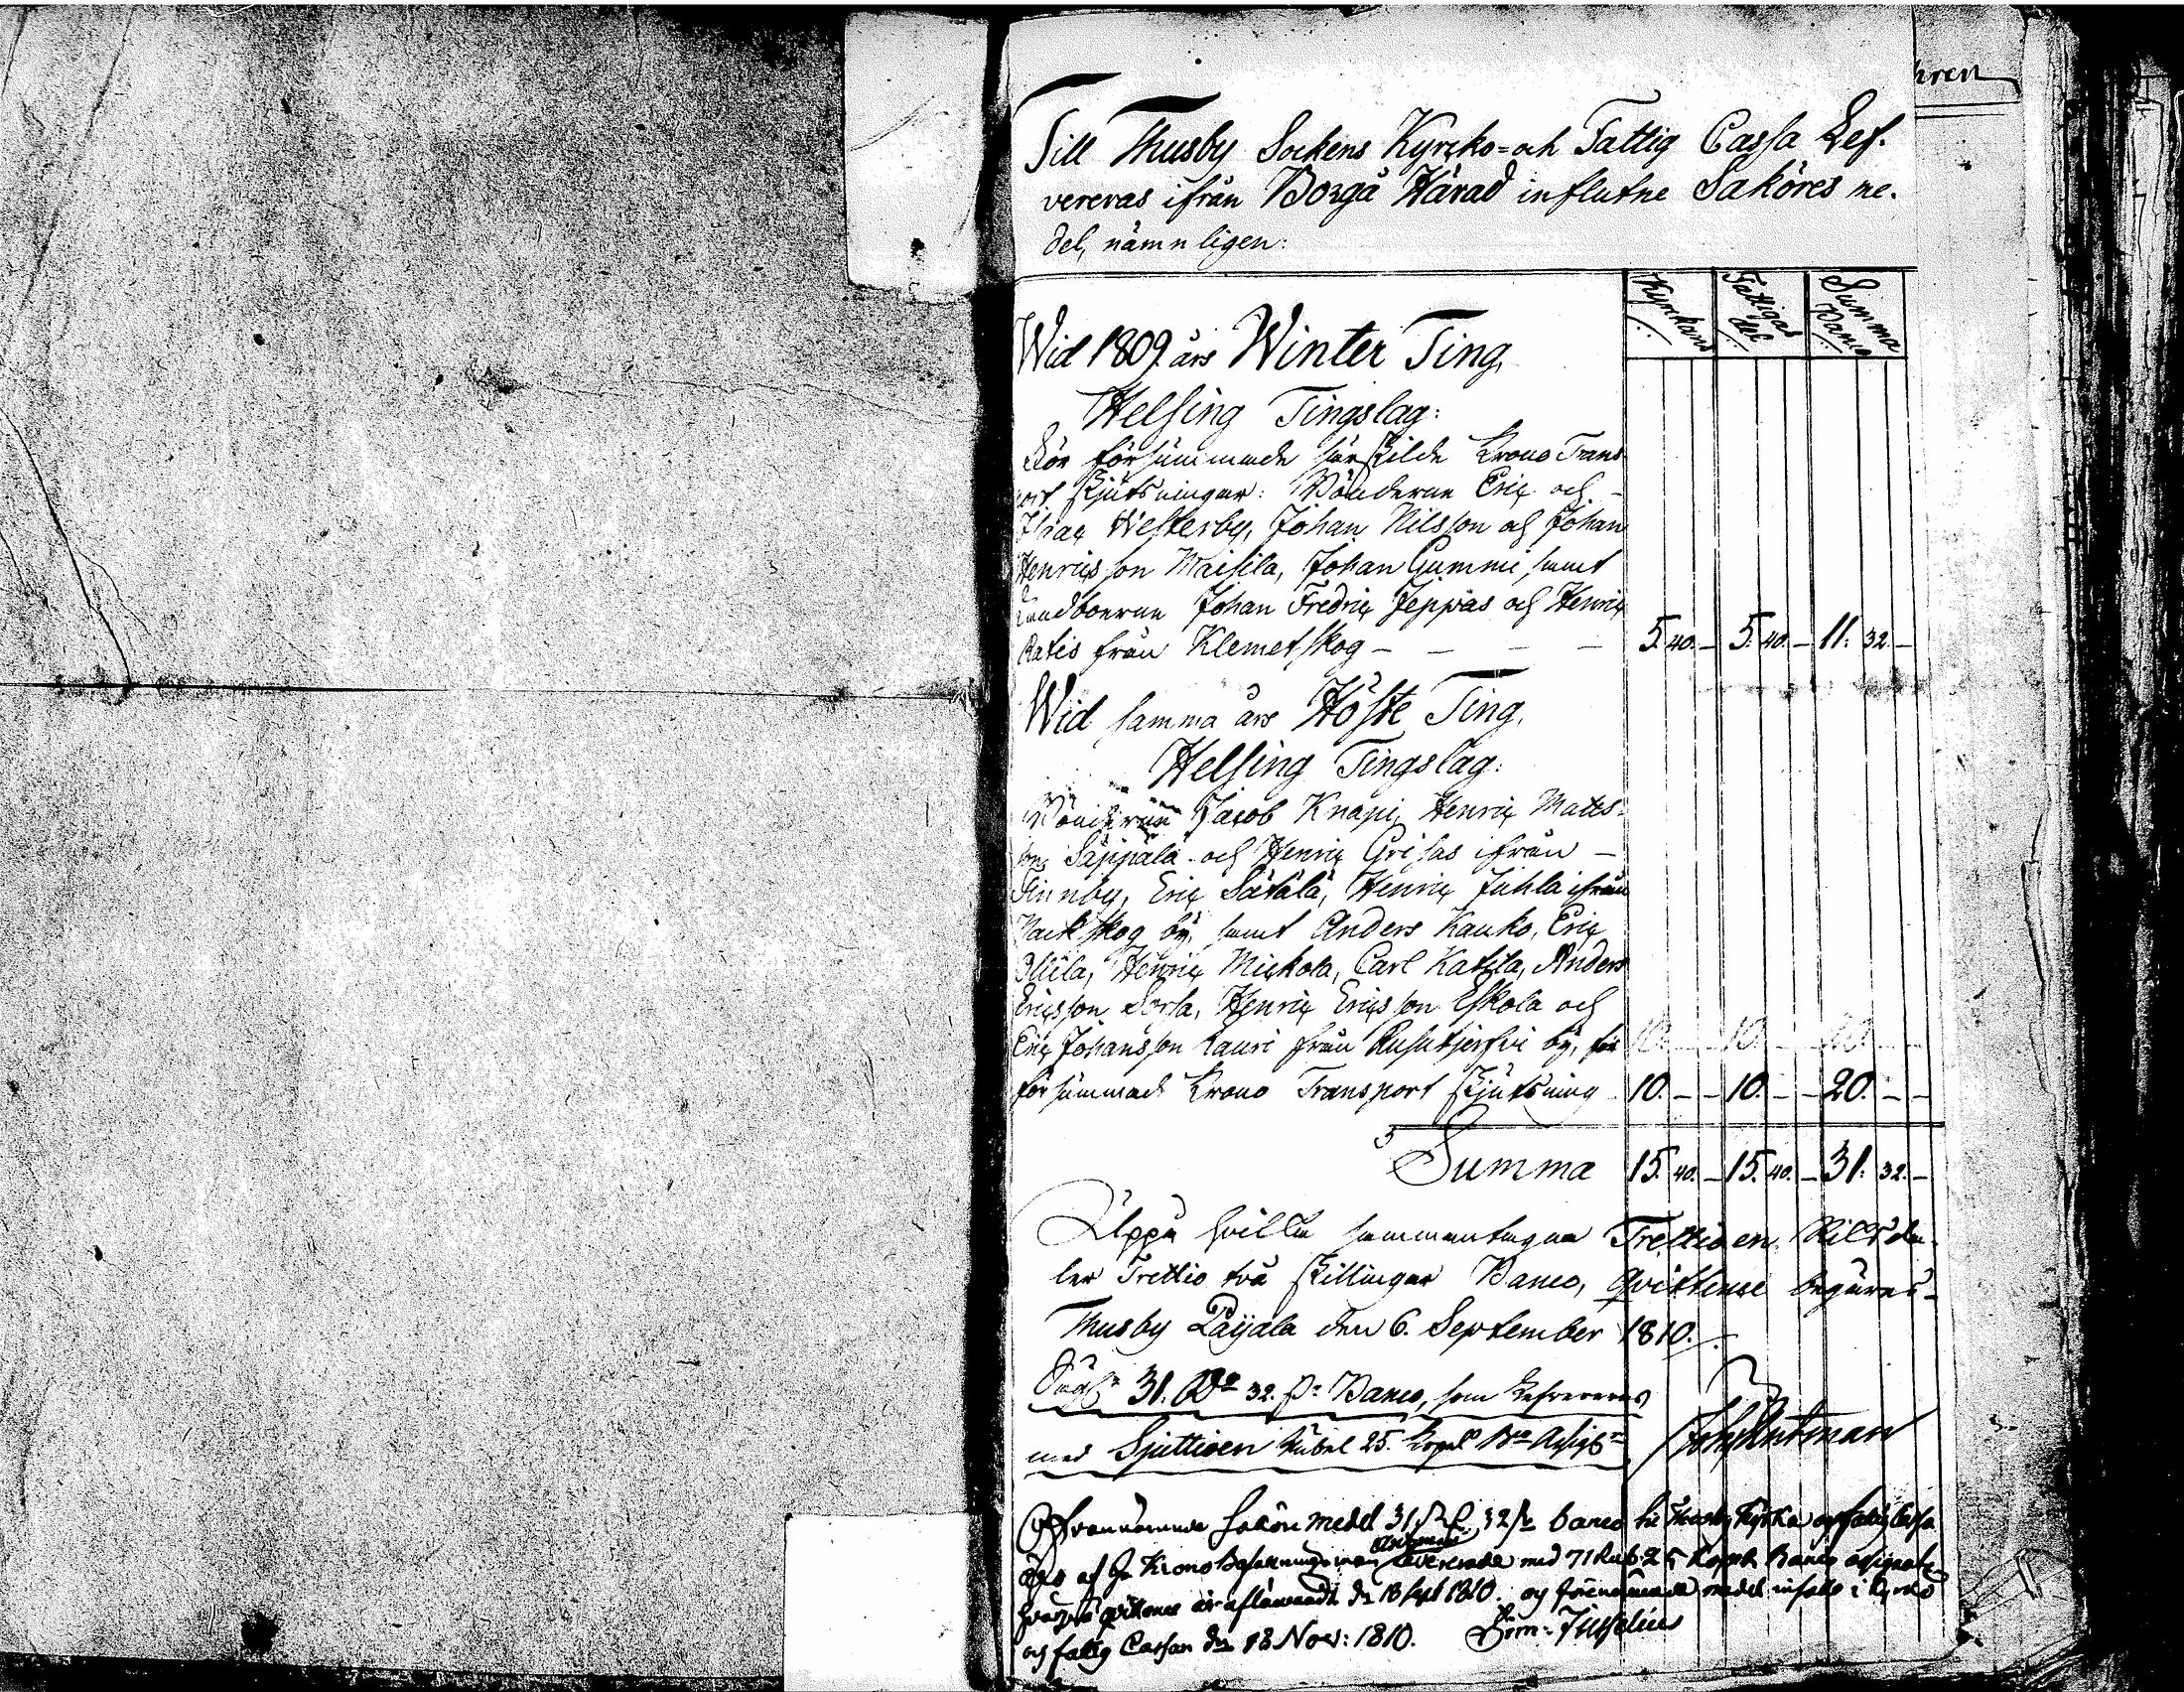 hren
Till Thusby Sockens Kyrcko- och Fattig Cassa Lef-
vereras ifrån Borgå Härad influtne Saköres me-
del, nämnligen:
Kyrckans Fattigas del Summa Banco
Wid 1809 års Winter Ting,
Helsing Tingslag:
För försummade särskilde Krono Trans
port skjutsningar: Bönderne Eric och
Isaac Westerby, Johan Nilsson och Johan
Henricsson Maisila, Johan Gummi, samt
Landboerne Johan Fredric Jeppas och Henric
Ratis från Klemetskog 5. 40. – 5. 40. – 11. 32. –
Wid samma års Höste Ting.
Helsing Tingslag:
Bönderne Jacob Knapi, Henric Matts-
son Säppälä och Henric Grisas ifrån
Finnby, Eric Sätälä, Henric Juhla ifrån
Nackskog by, samt Anders Kauko, Eric
Ollila, Henric Mickola, Carl Katila, Anders
Ericsson Sorsa, Henric Ericsson Eskola och
Eric Johansson Lauri från Rusutjerfvi by, för 10. 10. 20.
försummad Krono Transport skjutsning 10. – – 10. – – 20. – –
Summa 15. 40. – 15. 40. – 31. 32. –
Uppå hvilka sammantagne Trettioen Riksda-
ler Trettio två skillingar Banco, qvittence begäres.
Thusby Päijälä den 6. September 1810.
31. Rd 32. s. Banco, som Lefvereras
med Sjuttioen Rubel 25. Kopek Bco Assigr
Joh Antman
Ofvannämnde saköre medel 31 Rd 32 s banco til Thusby Kyrko och fattig Cassa
af Hr Krono Befallningsman Antman Levererade med 71 Rub. 25 Kopek Banco assignat
qvittence är aflämnadt d 18 Sept 1810. och förenämnde medel införde i Kyrko
och fattig Cassan den 18 Nov: 1810.